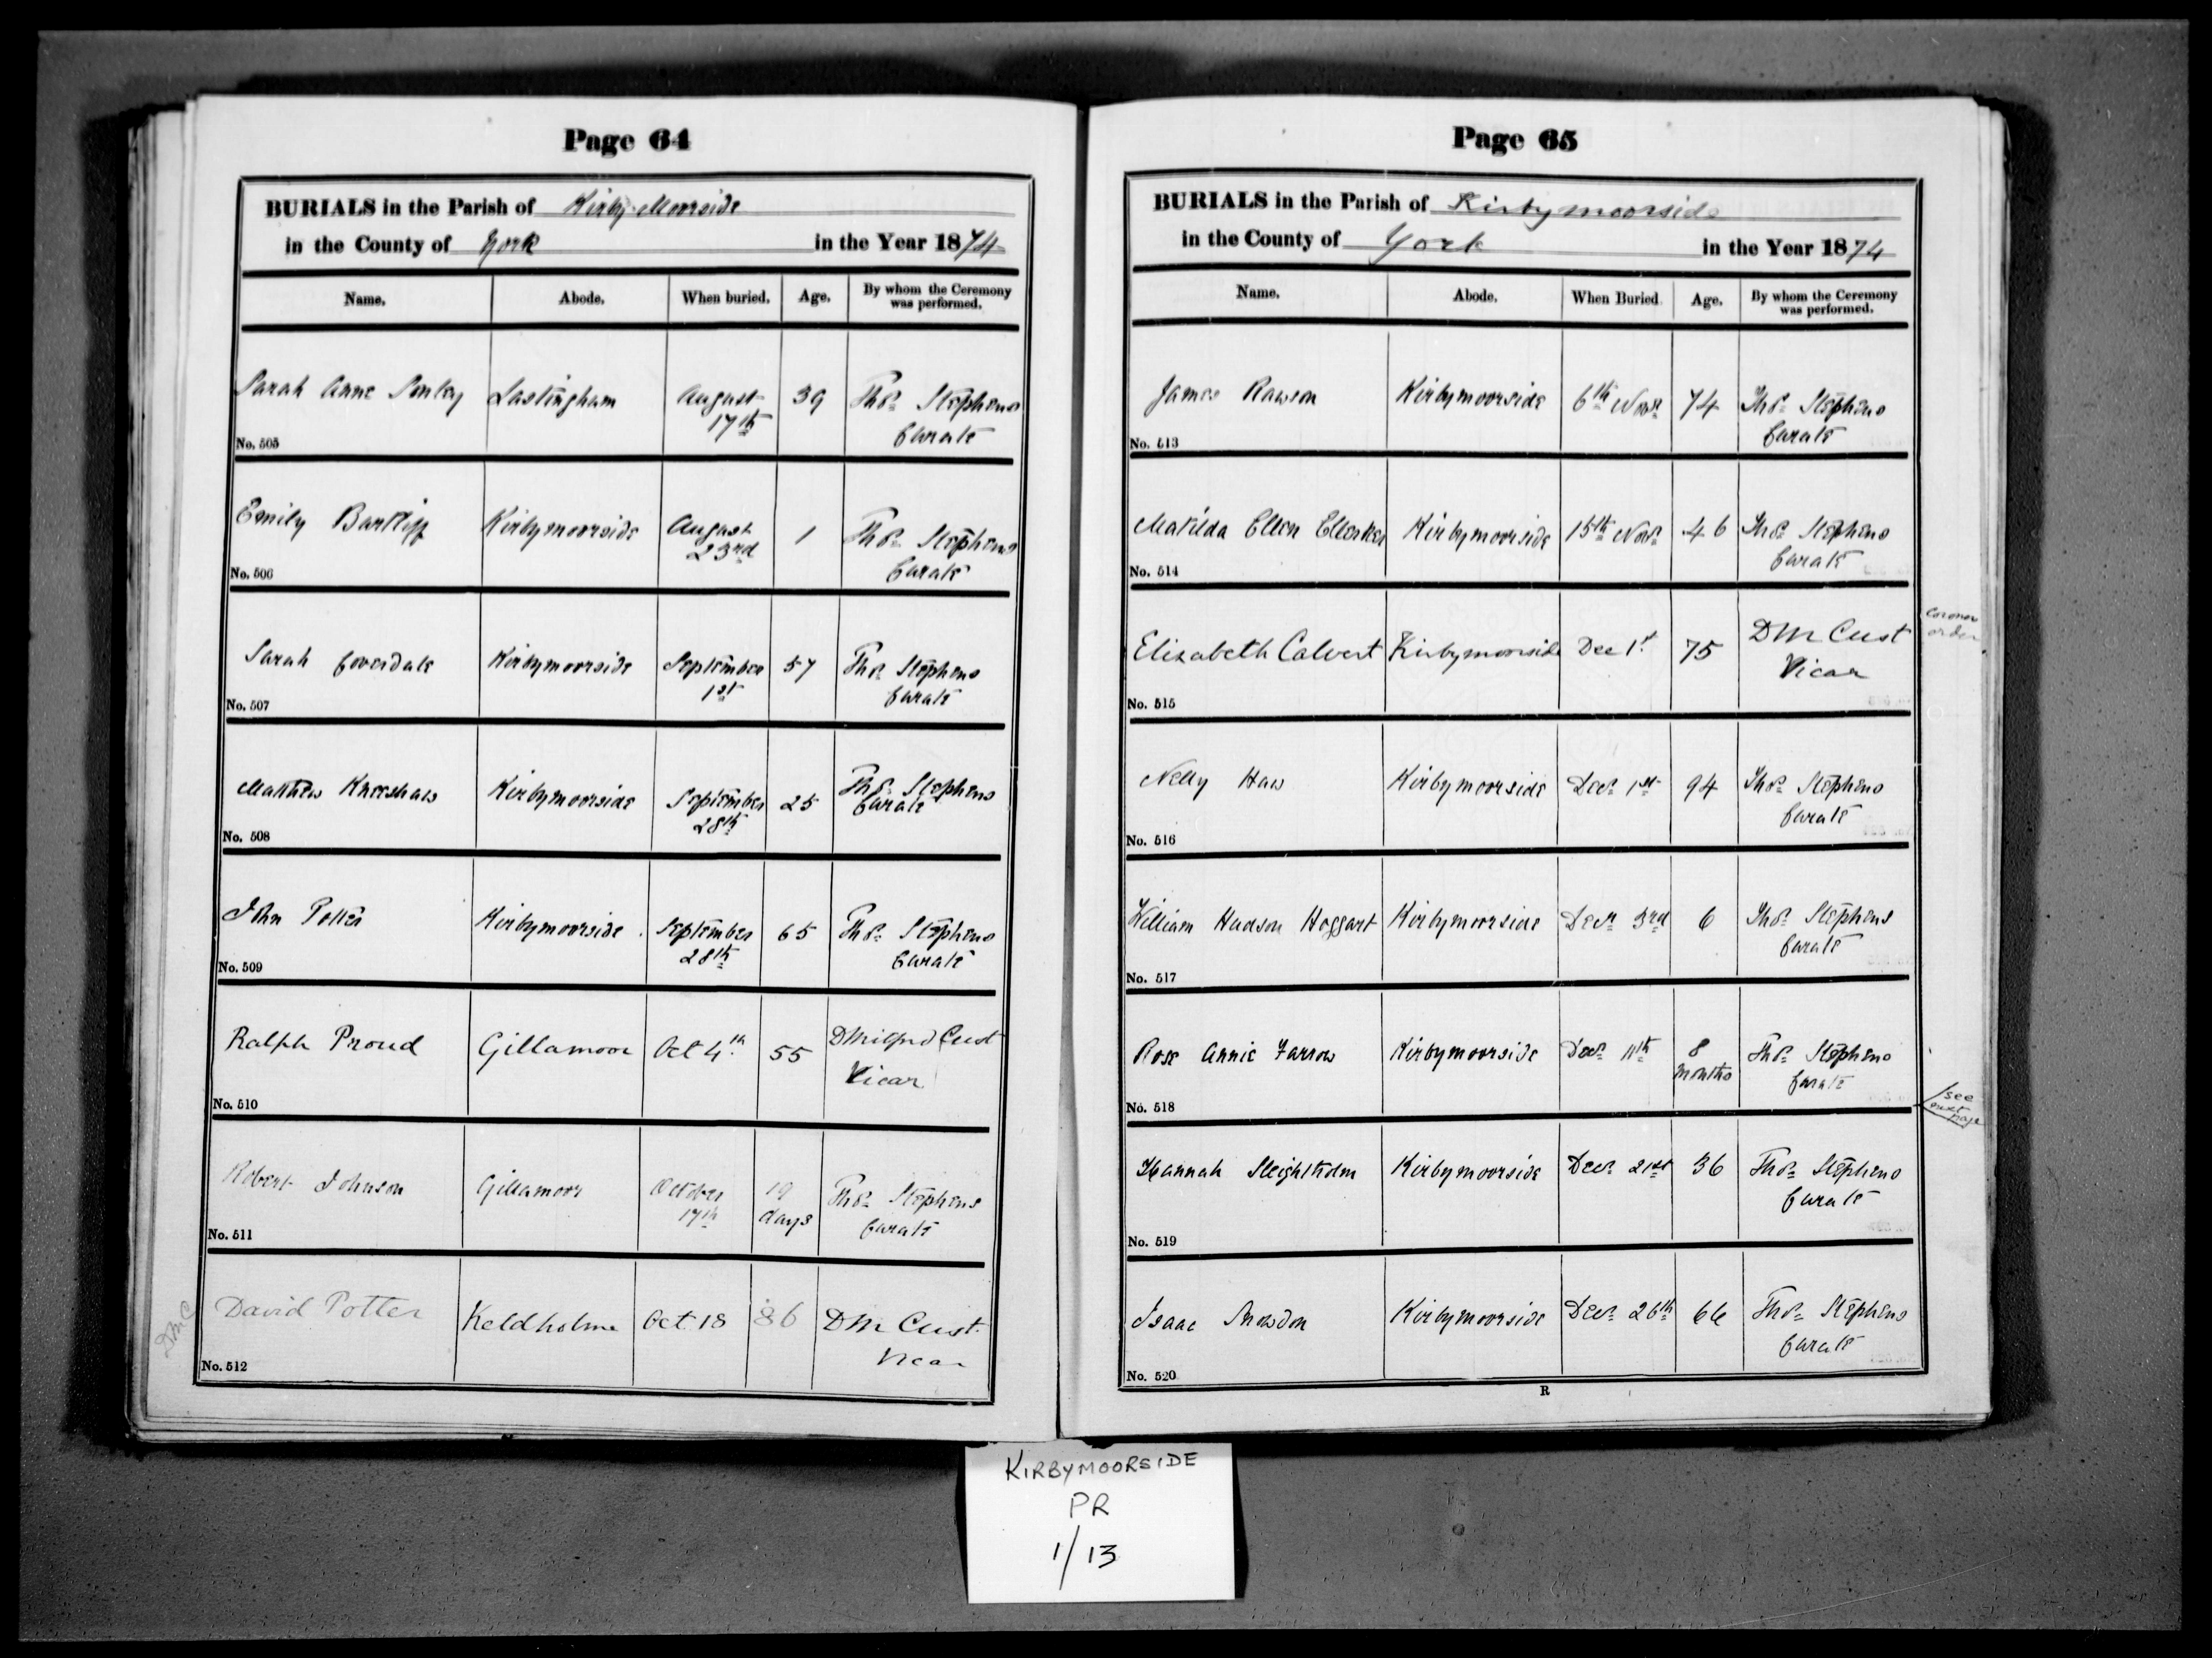 Page 64
BURIALS in the Parish of Kirby-Moorside
in the County of York in the Year 1874
Name. Abode. When buried. Age. By whom the Ceremony
was performed.
Sarah Anne Lastingham August 39 Thos. Stephens
17th Curate
No. 505
Emily Kirbymoorside August 1 Thos. Stephens
23rd Curate
No. 506
Sarah Coverdale Kirbymoorside September 57 Thos. Stephens
1st Curate
No. 507
Matthew Kneeshaw Kirbymoorside September 25 Thos. Stephens
28th Curate
No. 508
John Potter Kirbymoorside September 65 Thos. Stephens
28th Curate
No. 509
Ralph Proud Gillamoor Oct 4th 55 Cust
Vicar
No. 510
Robert Johnson Gillamoor October 19 Thos. Stephens
17th days Curate
No. 511
David Potter Keldholme Oct 18 86 DM Cust
Vicar
DMC
No. 512
Page 65
BURIALS in the Parish of Kirbymoorside
in the County of York in the Year 1874
Name. Abode. When Buried. Age. By whom the Ceremony
was performed.
James Rawson Kirbymoorside 6th Novr 74 Thos. Stephens
Curate
No. 513
Matilda Ellen Ellerker Kirbymoorside 15th Novr 46 Thos. Stephens
Curate
No. 514
Elizabeth Calvert Kirbymoorside Dec 1st 75 DM Cust
Vicar
Coroners
order
No. 515
Nelly Haw Kirbymoorside Decr 1st 94 Thos. Stephens
Curate
No. 516
William Hudson Hoggart Kirbymoorside Decr 3rd 6 Thos. Stephens
Curate
No. 517
Rose Annie Farrow Kirbymoorside Decr 11th 8 Thos. Stephens
months Curate
No. 518
see
next
page
Hannah Sleightholm Kirbymoorside Decr 21st 36 Thos. Stephens
Curate
No. 519
Isaac Snowdon Kirbymoorside Decr 26th 66 Thos. Stephens
Curate
No. 520
R
KIRBYMOORSIDE
PR
1/13